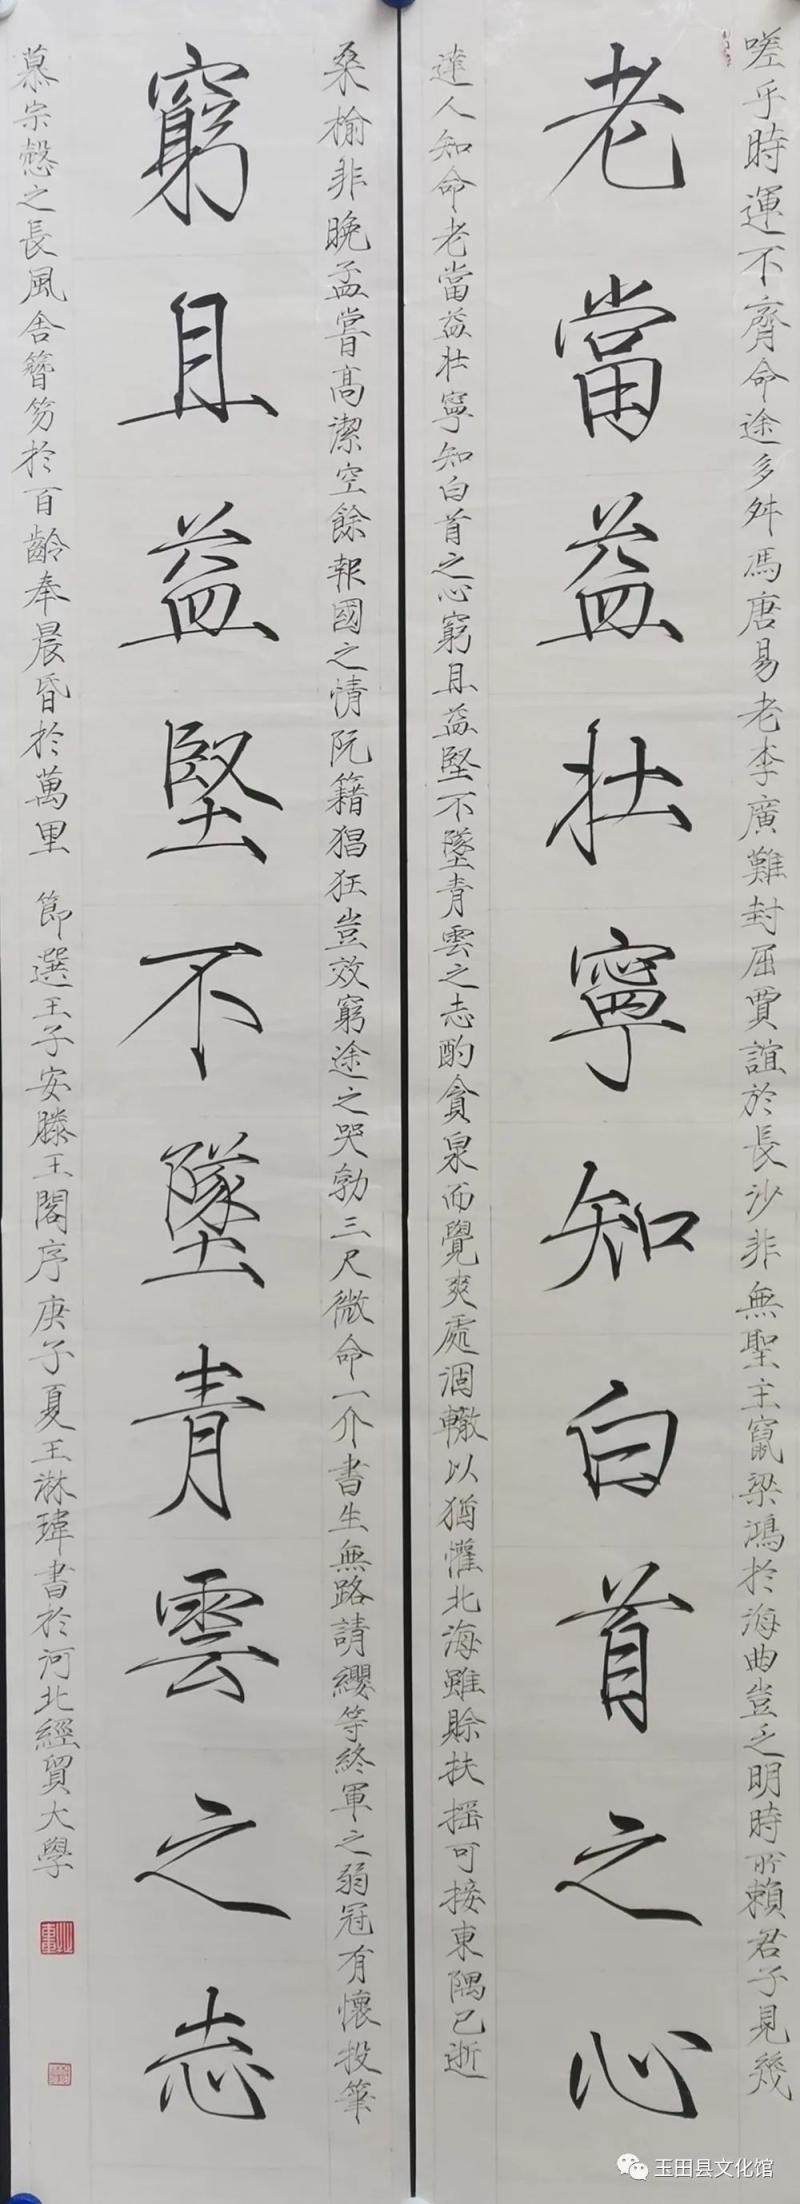 嗟乎時運不齊命途多舛馮唐易老李廣難封屈賈誼於長沙非無聖主竄梁鴻於海曲豈乏明時所賴君子見幾
老當益壯寧知白首之心
達人知命老當益壯寧知白首之心窮且益堅不墜青雲之志酌貪泉而覺爽處涸轍以猶懽北海雖賒扶搖可接東隅已逝
桑榆非晚孟嘗高潔空餘報國之情阮籍猖狂豈效窮途之哭勃三尺微命一介書生無路請纓等終軍之弱冠有懷投筆
窮且益堅不墜青雲之志
慕宗慤之長風舍簪笏於百齡奉晨昏於萬里 節選王子安滕王閣序庚子夏王淋瑋書於河北經貿大學
玉田县文化馆